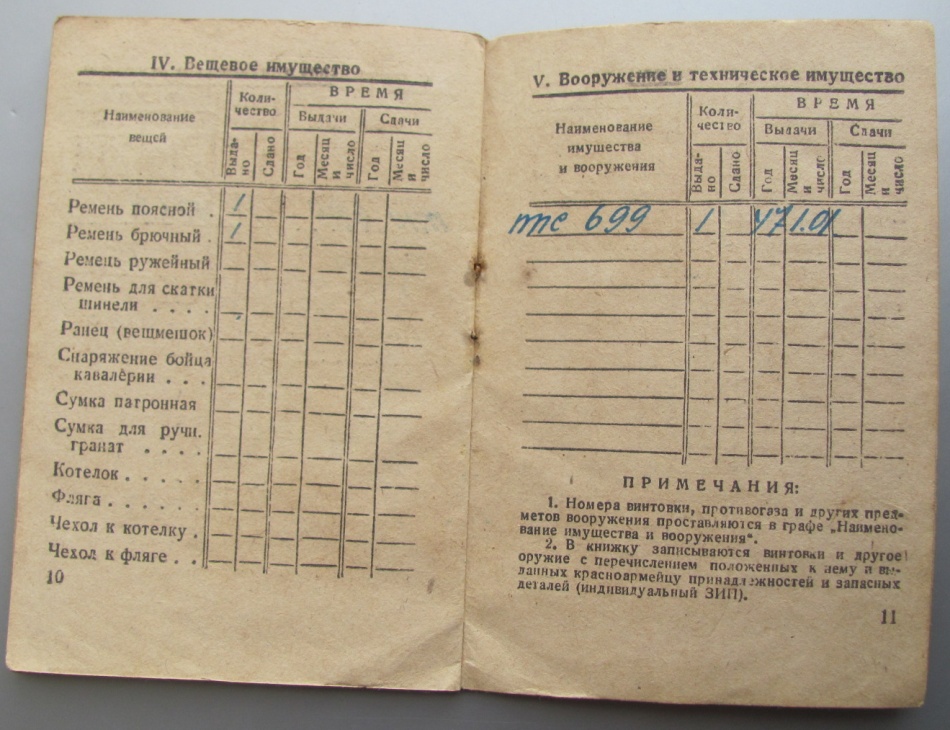 IV. Вещевое имущество
Наименование
вещей
Коли-
чество
ВРЕМЯ
Выдачи
Сдачи
Выда-
но
Сдано
Год
Месяц
и
число
Год
Месяц
и
число
Ремень поясной . 1
Ремень брючный . 1
Ремень ружейный
Ремень для скатки
шинели . . . .
Ранец (вещмешок)
Снаряжение бойца
кавалерии . . .
Сумка патронная
Сумка для ручн.
гранат . . . .
Котелок . . . . .
Фляга . . . . . .
Чехол к котелку .
Чехол к фляге . .
10
V. Вооружение и техническое имущество
Наименование
имущества
и вооружения
Коли-
чество
ВРЕМЯ
Выдачи
Сдачи
Выда-
но
Сдано
Год
Месяц
и
число
Год
Месяц
и
число
тс 699 1 47 1.01
ПРИМЕЧАНИЯ:
1. Номера винтовки, противогаза и других пред-
метов вооружения проставляются в графе „Наимено-
вание имущества и вооружения“.
2. В книжку записываются винтовки и другое
оружие с перечислением положенных к нему и вы-
данных красноармейцу принадлежностей и запасных
деталей (индивидуальный ЗИП).
11